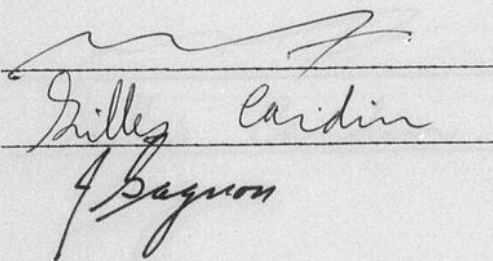 Gilles Cardin
J Gagnon